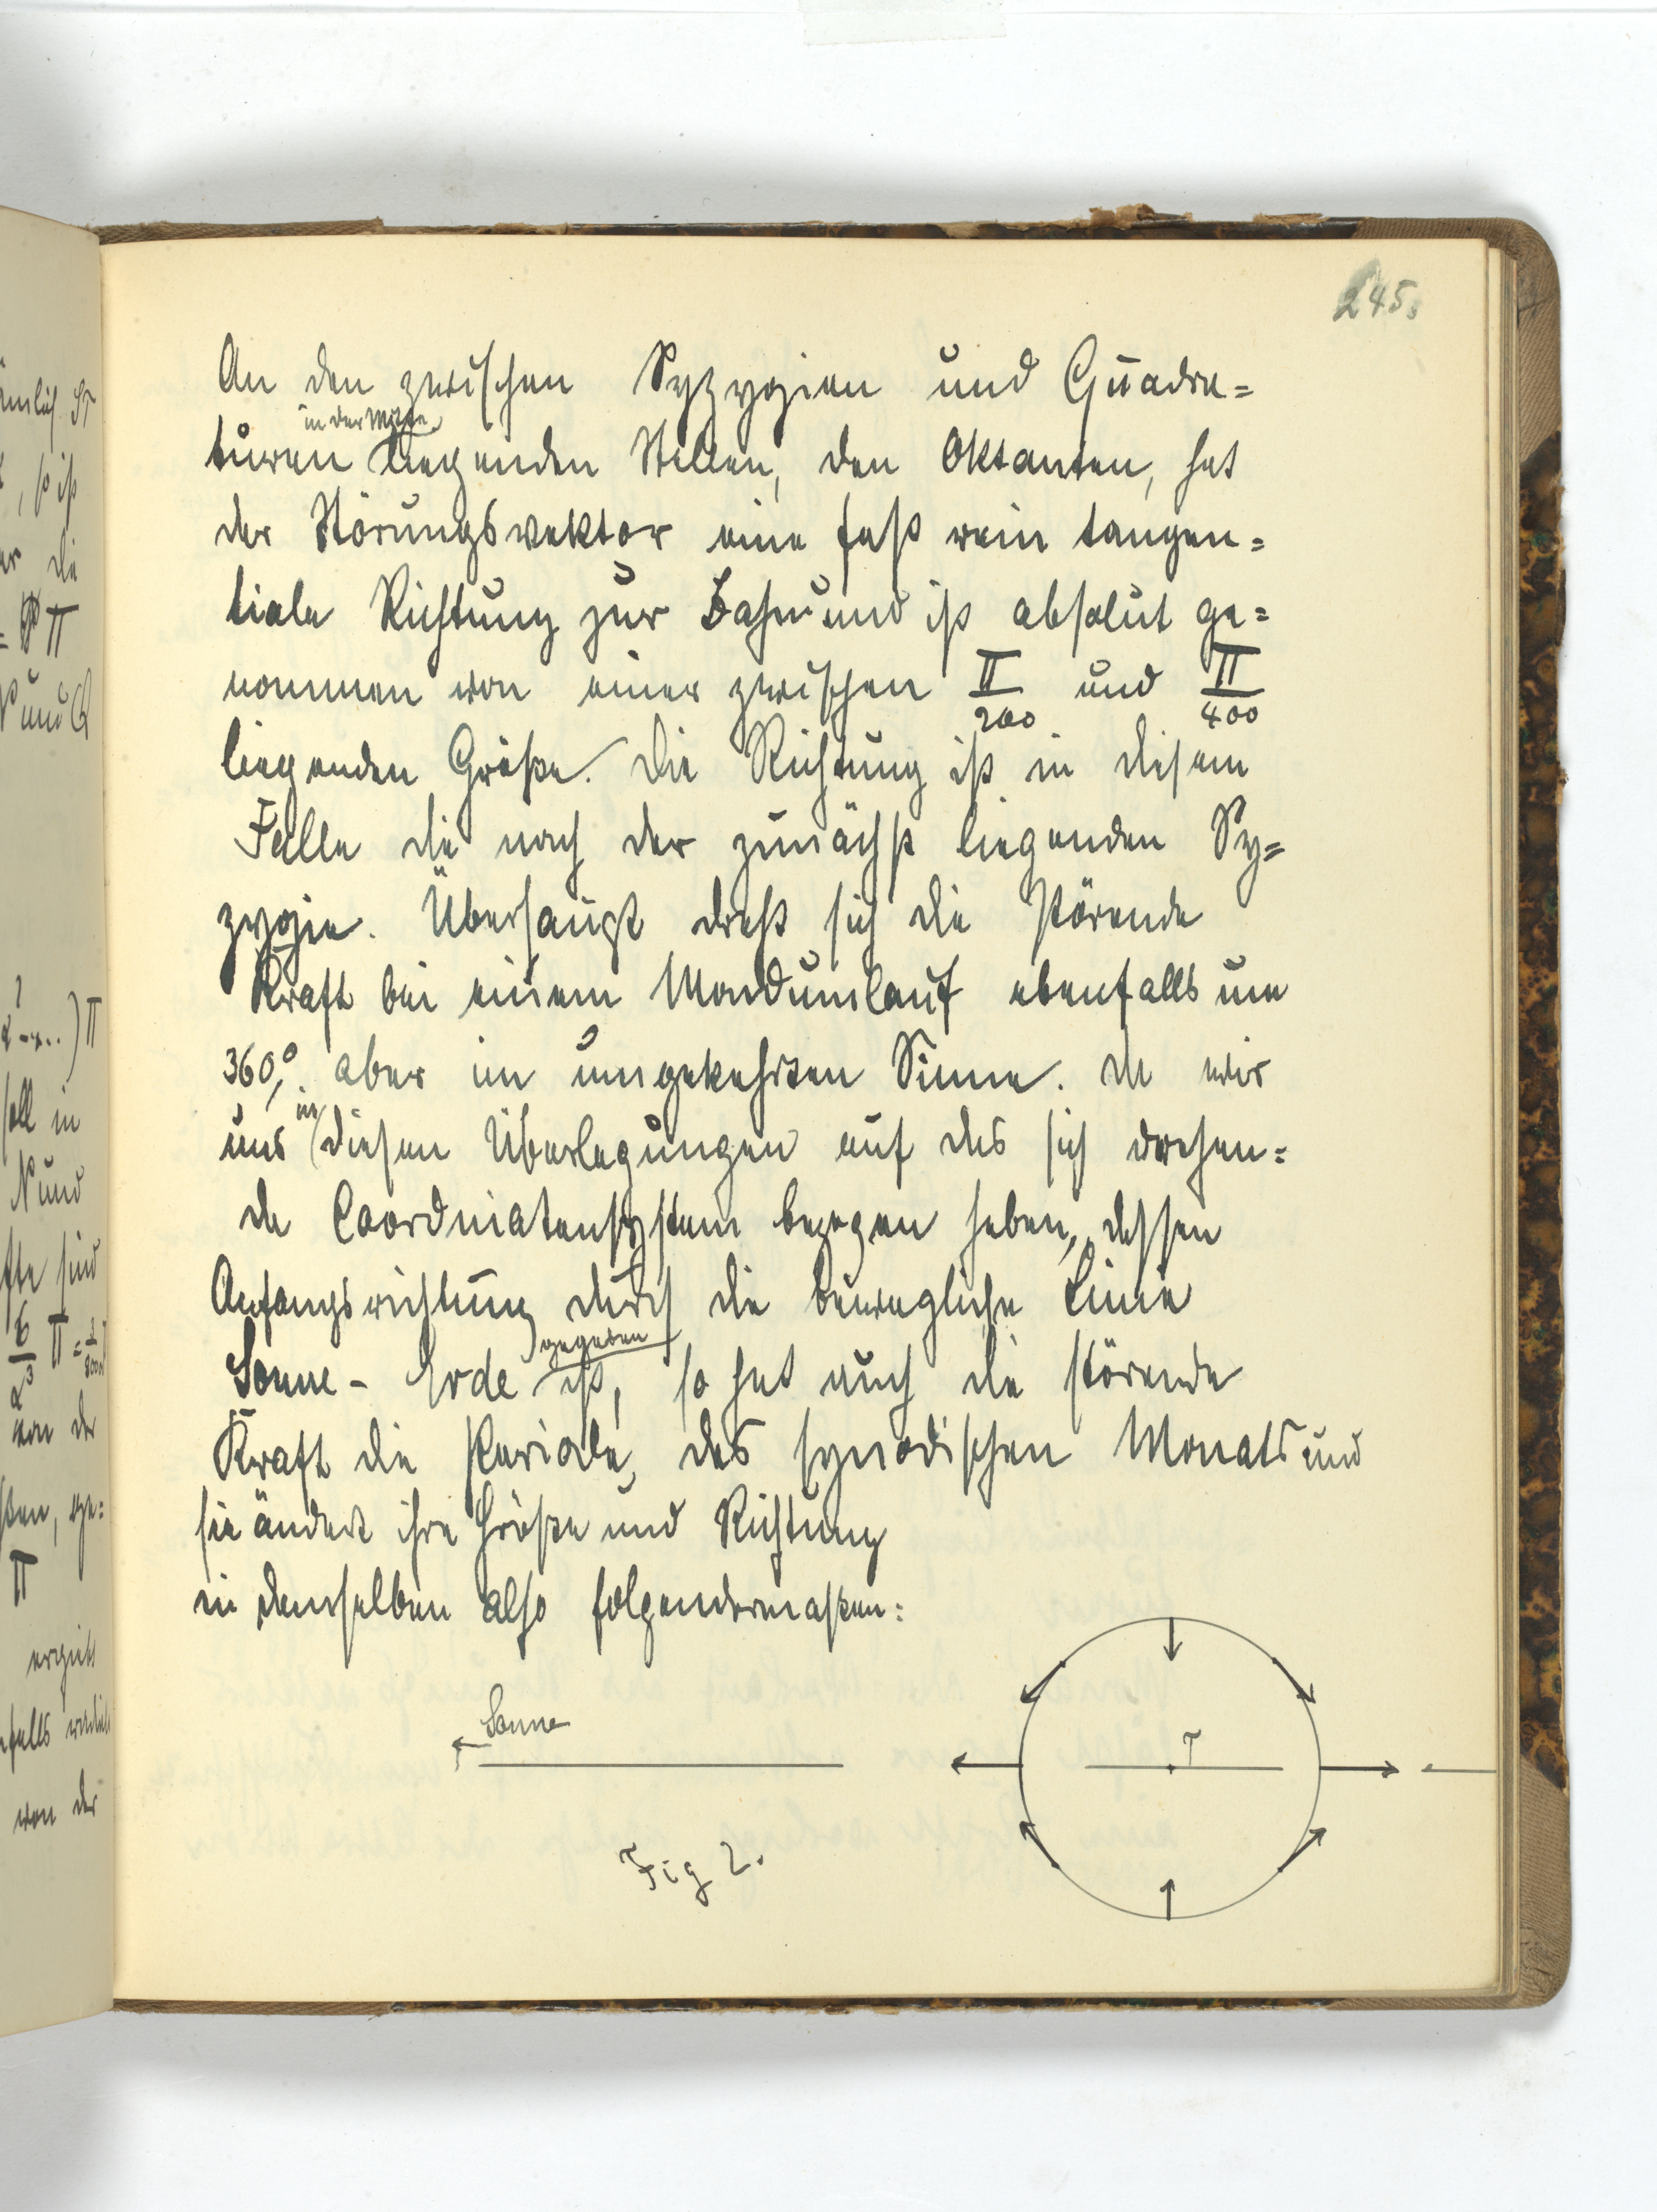 245.
An den zwischen Syzygien und Quadra=
in der Mitte
turen liegenden Stellen, den Oktanten, hat
der Störungsvektor eine fast rein tangen=
tiale Richtung zur Bahn und ist absolut ge=
nommen von einer zwischen Π/200 und Π/400
liegenden Größe. Die Richtung ist in diesem
Falle die nach der zunächst liegenden Sy=
zygie. Überhaupt dreht sich die störende
Kraft bei einem Mondumlauf ebenfalls um
360°, aber im umgekehrten Sinne. Da wir
uns in diesen Überlegungen auf das sich drehen=
de Coordinatensystem bezogen haben, dessen
Anfangsrichtung durch die bewegliche Linie
Sonne - Erde gegeben ist, so hat auch die störende
Kraft die Periode des synodischen Monats und
sie ändert ihre Größe und Richtung
in demselben also folgendermaßen:
Sonne
T
Fig 2.